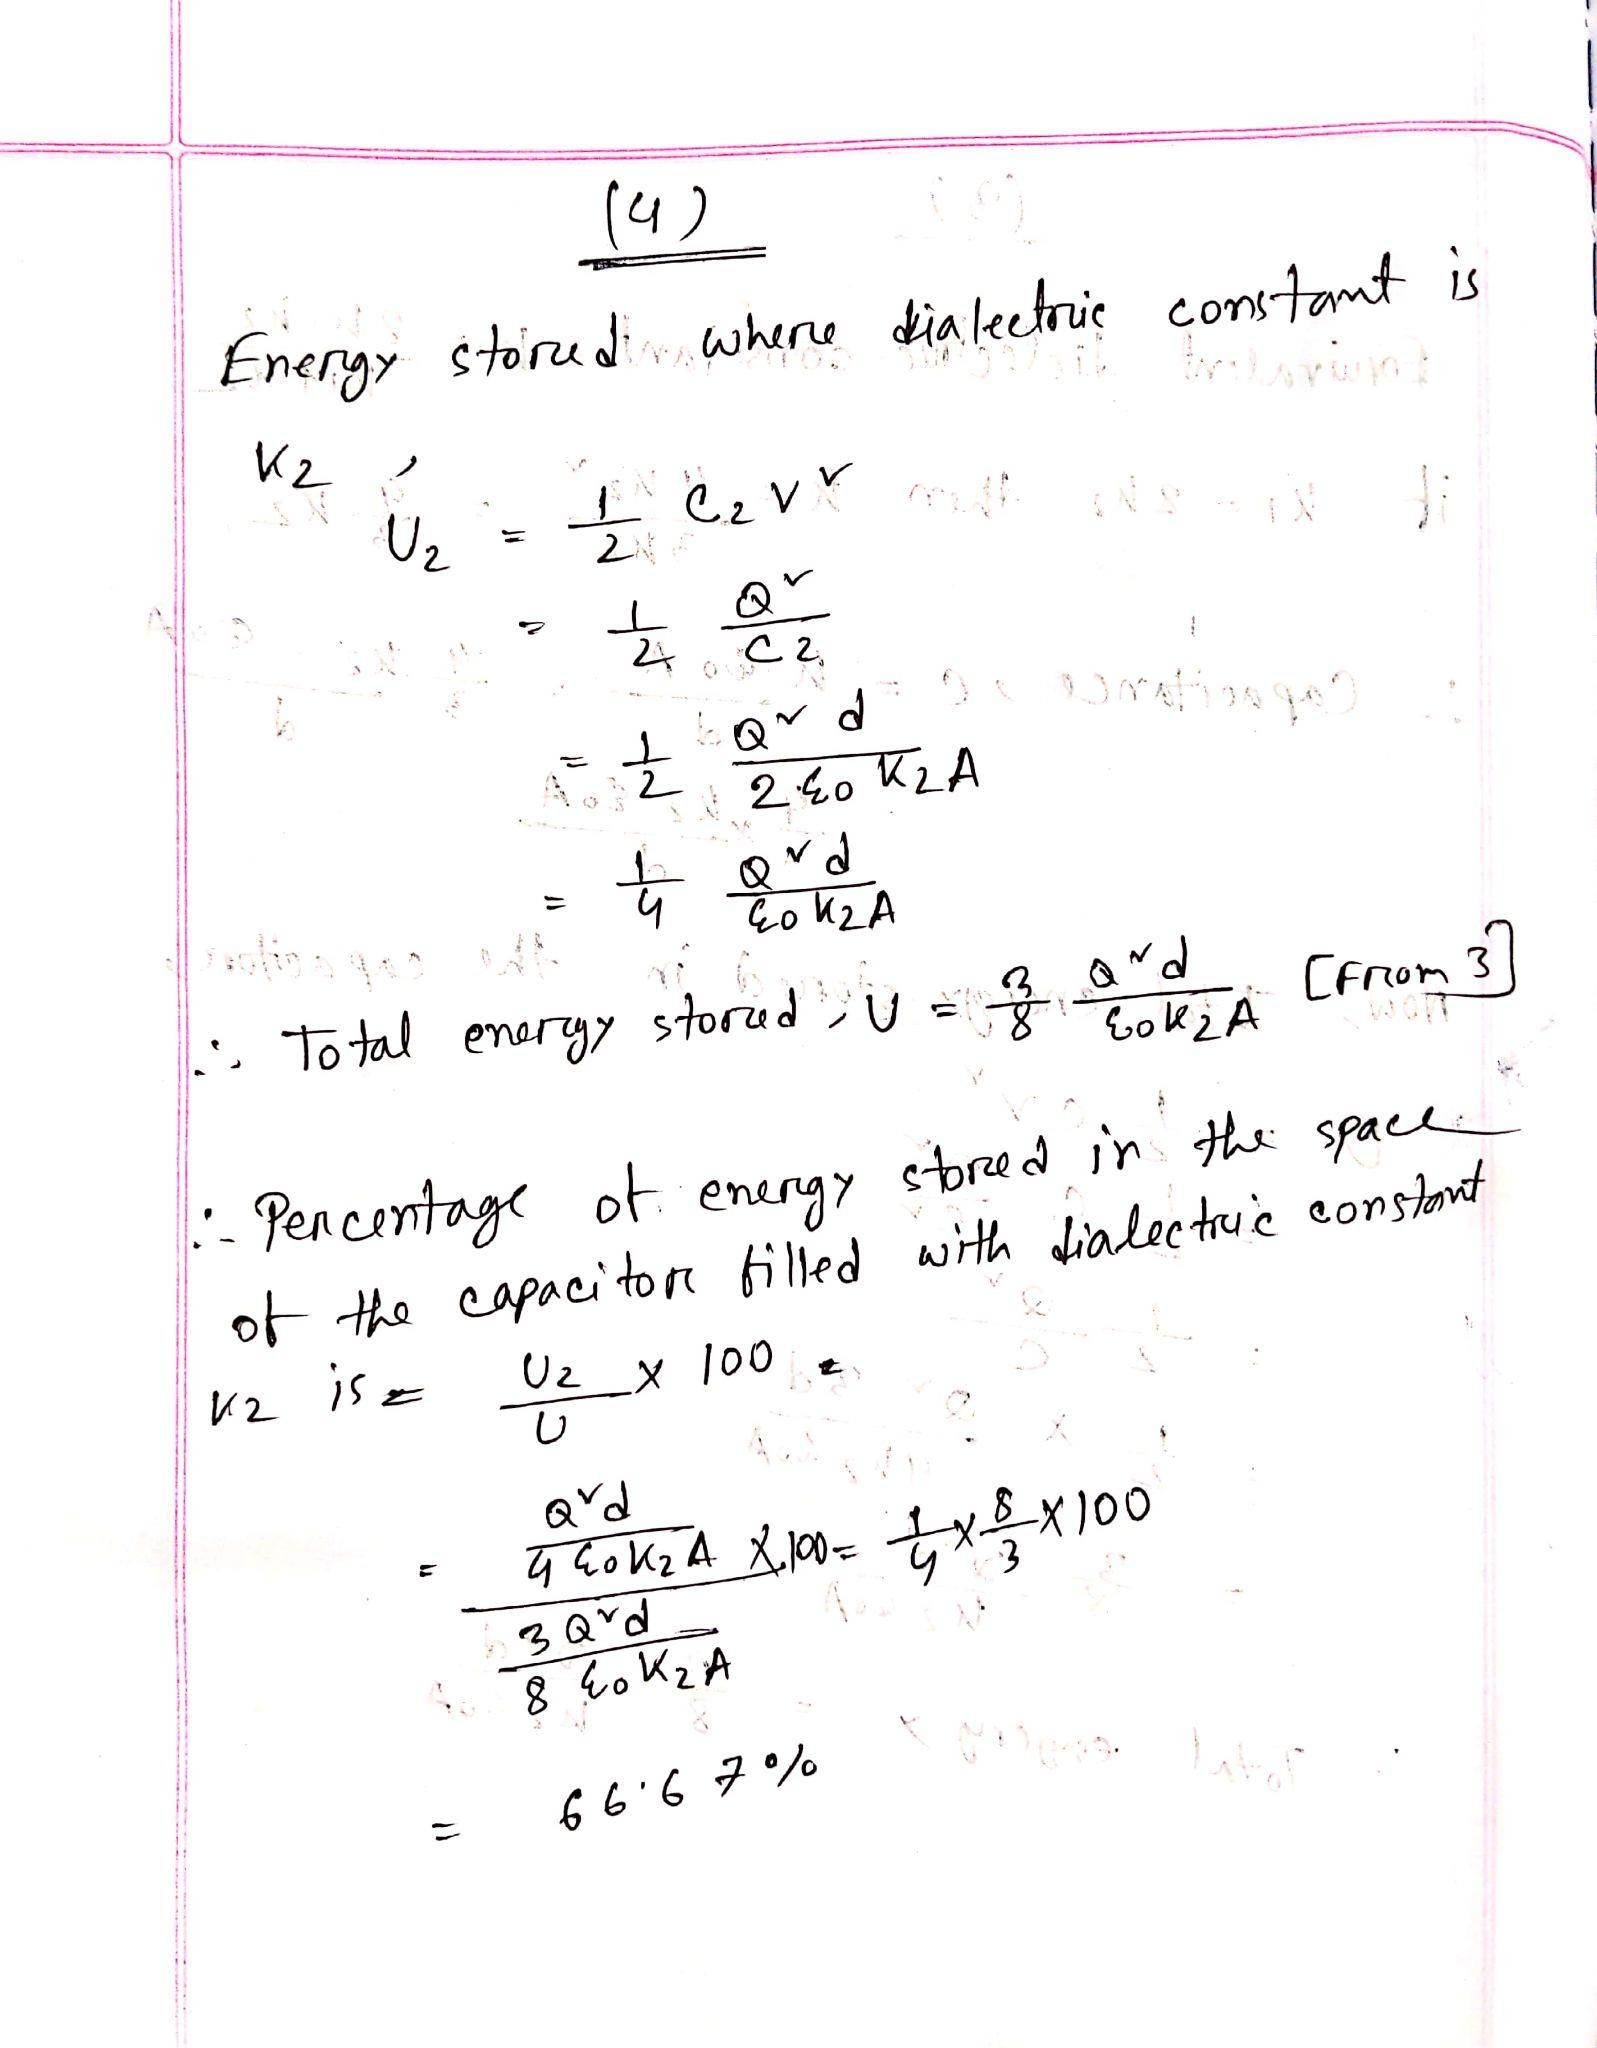 (4)
Energy stored where dialectric constant is
K2,
U2 = 1/2 C2 V²
= 1/2 Q²/C2
= 1/2 Q²d/2ε0K2A
= 1/4 Q²d/ε0K2A
∴ Total energy stored, U = 3/8 Q²d/ε0K2A [From 3]
∴ Percentage of energy stored in the space
of the capacitor filled with dialectric constant
K2 is = U2/U × 100 =
= (Q²d/4ε0K2A)/(3Q²d/8ε0K2A) × 100 = 1/4 × 8/3 × 100
= 66.67%